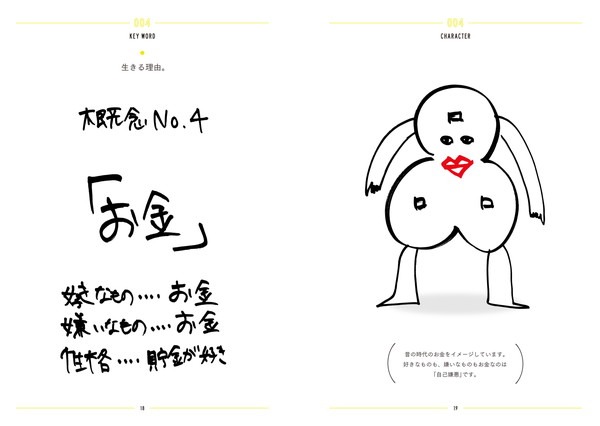 004
KEY WORD
生きる理由。
概念No.4
「お金」
好きなもの....お金
嫌いなもの....お金
性格....貯金が好き
18
004
CHARACTER
昔の時代のお金をイメージしています。
好きなものも、嫌いなものもお金なのは
「自己嫌悪」です。
19